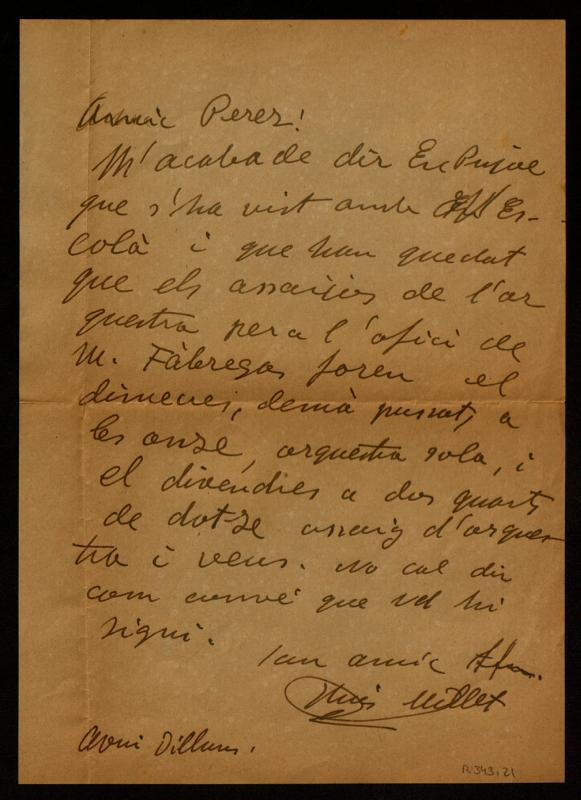 Amic Perez!
M'acaba de dir En Pujol
que s'ha vist amb Es-
colà i que han quedat
que els assaijos de l'or
questra pera l'ofici de
M. Fàbregas foren el
dimecres, demà passat, a
les onze, orquestra sola, i
el divendres a dos quarts
de dotze assaig d'orques
tra i veus. No cal dir
com convé que vd hi
sigui.
Son amic Afm.
Lluis Millet
Avui Dilluns.
R. 343, 21